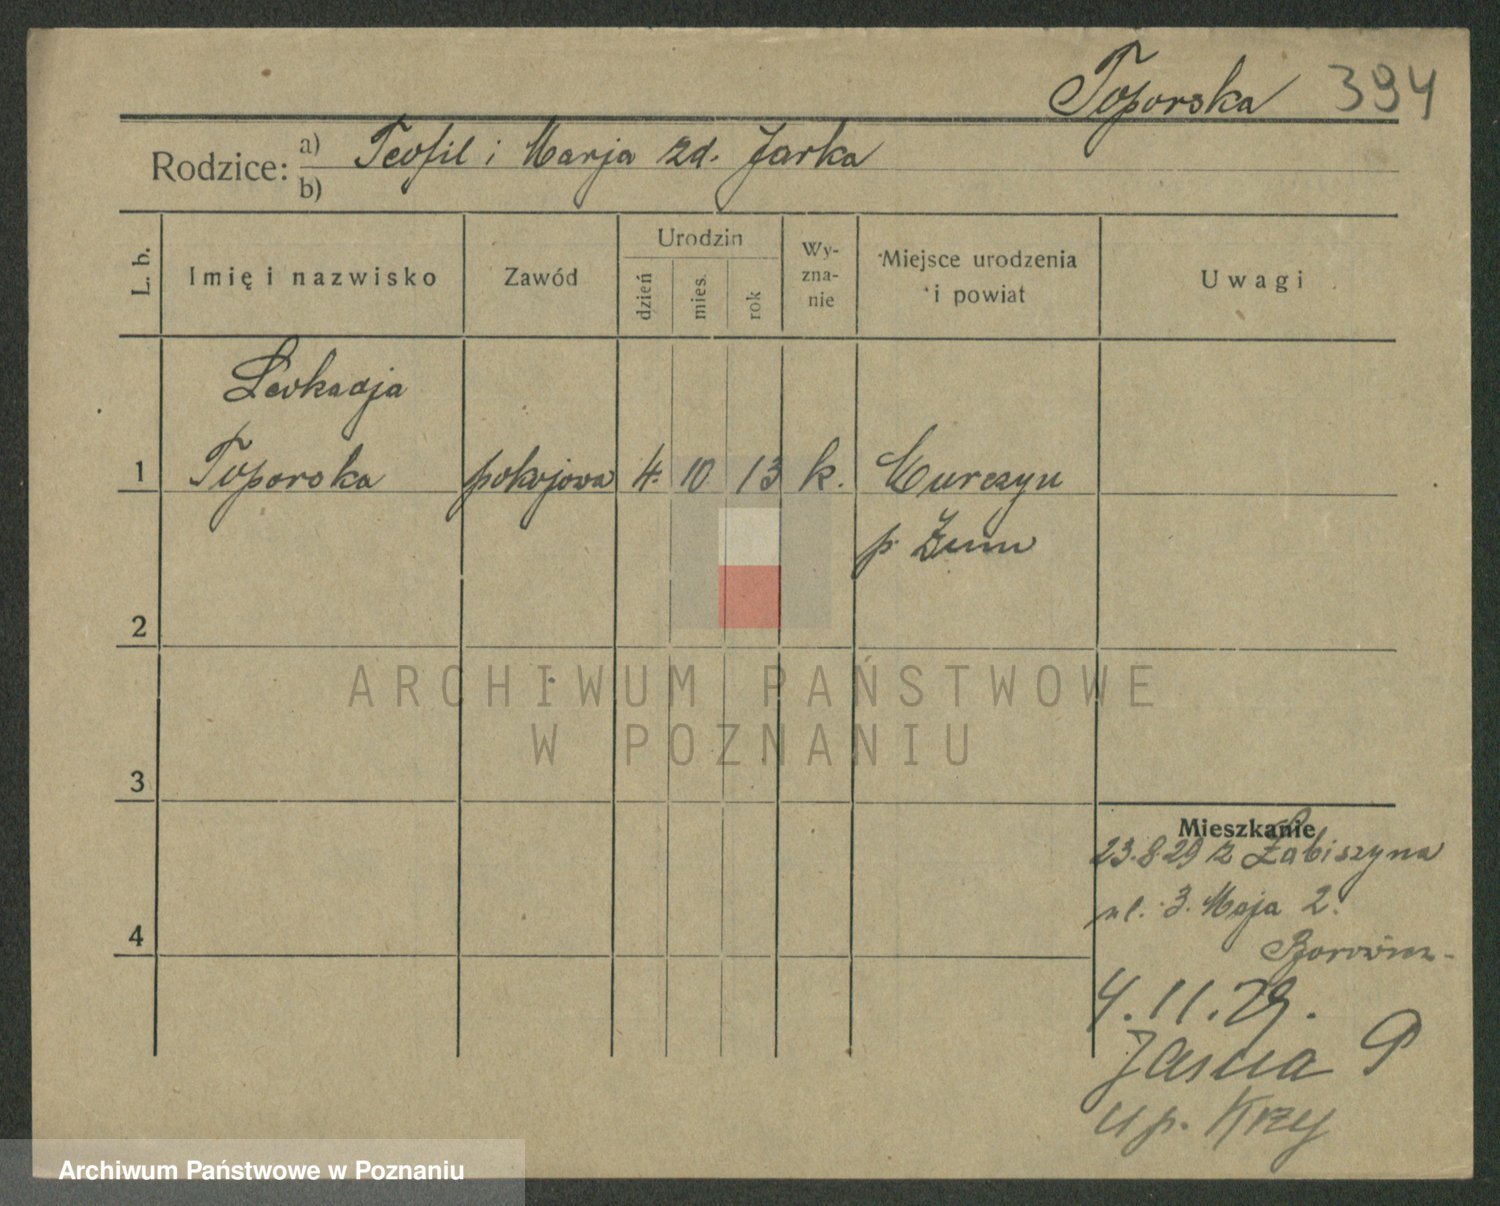 Toporska 394
Rodzice: a) Teofil i Marja zd. Jarka
b)
L. b.
Imię i nazwisko
Zawód
Urodzin
dzień
mies.
rok
Wy-
zna-
nie
Miejsce urodzenia
i powiat
Uwagi
Leokadja
1 Toporska pokojowa 4. 10 13 k. Murczyn
p. Żnin
2
3
4
Mieszkanie
23.8.29 z Łabiszyna
ul. 3. Maja 2.
4.11.29.
Jasna 9
u p. Krzy
ARCHIWUM PAŃSTWOWE
W POZNANIU
Archiwum Państwowe w Poznaniu